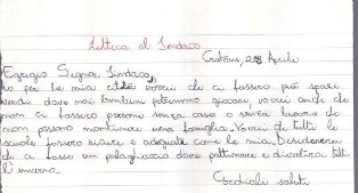 Lettera al Sindaco
Crotone, 28 Aprile
Egregio Signor Sindaco,
Io per la mia città vorrei che ci fossero più spazi
verdi dove noi bambini potremmo giocare, vorrei anche che
non ci fossero persone senza casa o senza lavoro che
non possono mantenere una famiglia. Vorrei che tutte le
scuole fossero sicure e adeguate come la mia. Desidererei
che ci fosse un palaghiaccio dove pattinare e divertirsi tutto
l'inverno.
Cordiali saluti